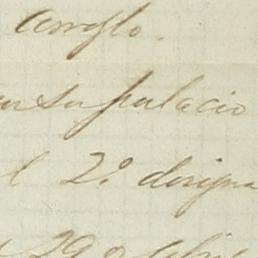 arreglo.
en su palacio
l 2º designa
29 o